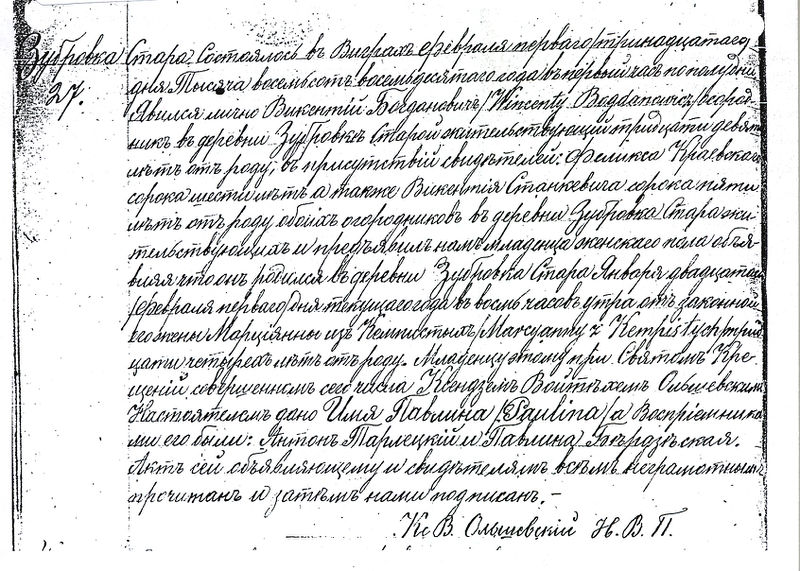 Зубровка Стара
27.
Состоялось въ Виграхъ Февраля перваго/тринадцатаго
дня Тысяча восемьсотъ восемьдесятаго года въ первый часъ по полудни
Явился лично Викентій Богдановичъ /Wincenty Bogdanowicz/ огород-
никъ въ деревни Зубровкѣ Старой жительствующій тридцати девяти
лѣтъ отъ роду, въ присутствіи свидѣтелей: Феликса Краевскаго
сорока шести лѣтъ а также Викентія Станкевича сорока пяти
лѣтъ отъ роду обоихъ огородниковъ въ деревни Зубровка Стара жи-
тельствующихъ и предъявилъ намъ младенца женскаго пола объя-
вляя что онъ родился въ деревни Зубровка Стара Января двадцатаго
/Февраля перваго/ дня текущаго года въ восмь часовъ утра отъ законной
его жены Марціянны изъ Кемпистыхъ /Marcyanny z Kempistych/ трид-
цати четырехъ лѣтъ отъ роду. Младенцу этому при Святомъ Кре-
щеніи совершенномъ сего числа Ксендзомъ Войтѣхомъ Ольшевскимъ
Настоятелемъ дано Имя Павлина /Paulina/ а Воспріемника-
ми его были: Антонъ Тарлецкій и Павлина
Актъ сей объявляющему и свидѣтелямъ всѣмъ неграмотнымъ
прочитанъ и затѣмъ нами подписанъ. –
Кс В. Ольшевскій Н. В. П.